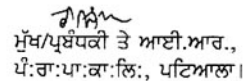 ਮੁੱਖ/ਪ੍ਰਬੰਧਕੀ ਤੇ ਆਈ.ਆਰ.,
ਪੰ:ਰਾ:ਪਾ:ਕਾ:ਲਿ:, ਪਟਿਆਲਾ।